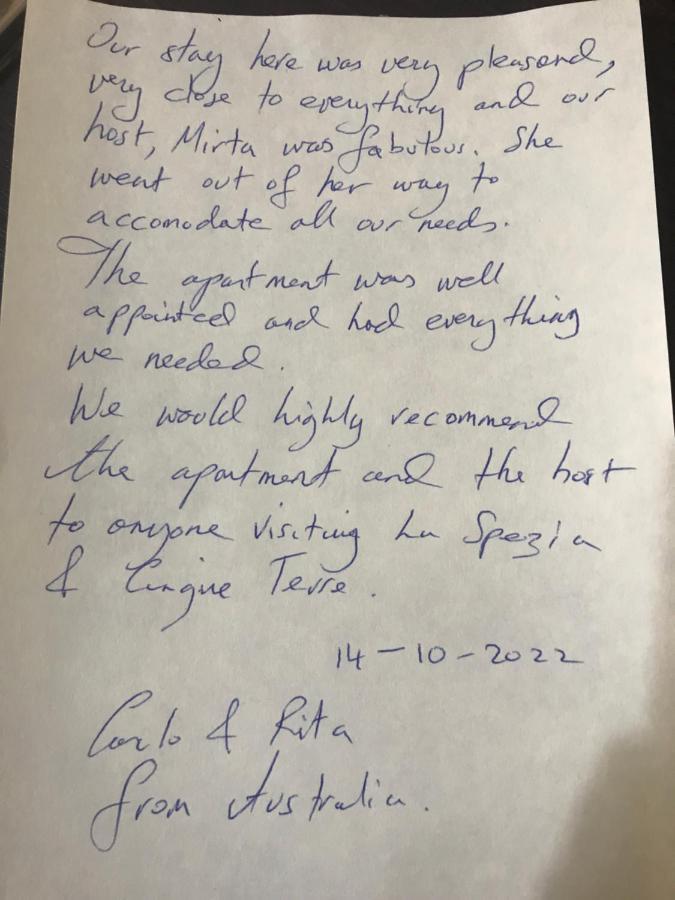 Our stay here was very pleasend,
very close to everything and our
host, Mirta was fabulous. She
went out of her way to
accomodate all our needs.
The apartment was well
appointed and had everything
we needed.
We would highly recommend
the apartment and the host
to anyone visiting La Spezia
& Cinque Terre.
14-10-2022
Carlo & Rita
from Australia.